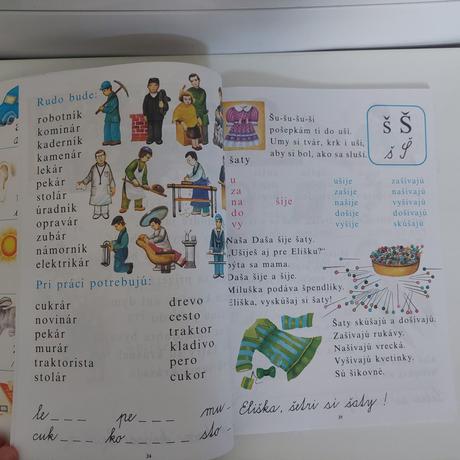 Rudo bude:
robotník
kominár
kaderník
kamenár
lekár
pekár
stolár
úradník
opravár
zubár
námorník
elektrikár
Pri práci potrebujú:
cukrár
novinár
pekár
murár
traktorista
stolár
drevo
cesto
traktor
kladivo
pero
cukor
le _ _ _ pe _ _ _ mu
cuk _ _ _ ko _ _ _ sto _
34
Šu-šu-šu-ši
pošepkám ti do uší.
Umy si tvár, krk i uši,
aby si bol, ako sa sluší.
š Š
š Š
šaty
u
za
na
do
vy
šije
ušije
zašije
našije
došije
vyšije
zašívajú
našívajú
vyšívajú
došívajú
skúšajú
Naša Daša šije šaty.
„Ušiješ aj pre Elišku?"
pýta sa mama.
Daša šije a šije.
Miluška podáva špendlíky.
Eliška, vyskúšaj si šaty!
Šaty skúšajú a došívajú.
Zašívajú rukávy.
Našívajú vrecká.
Vyšívajú kvetinky.
Sú šikovné.
Eliška, šetri si šaty!